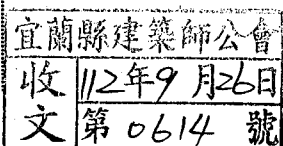 宜蘭縣建築師公會
收文
112年9月26日
第0614號